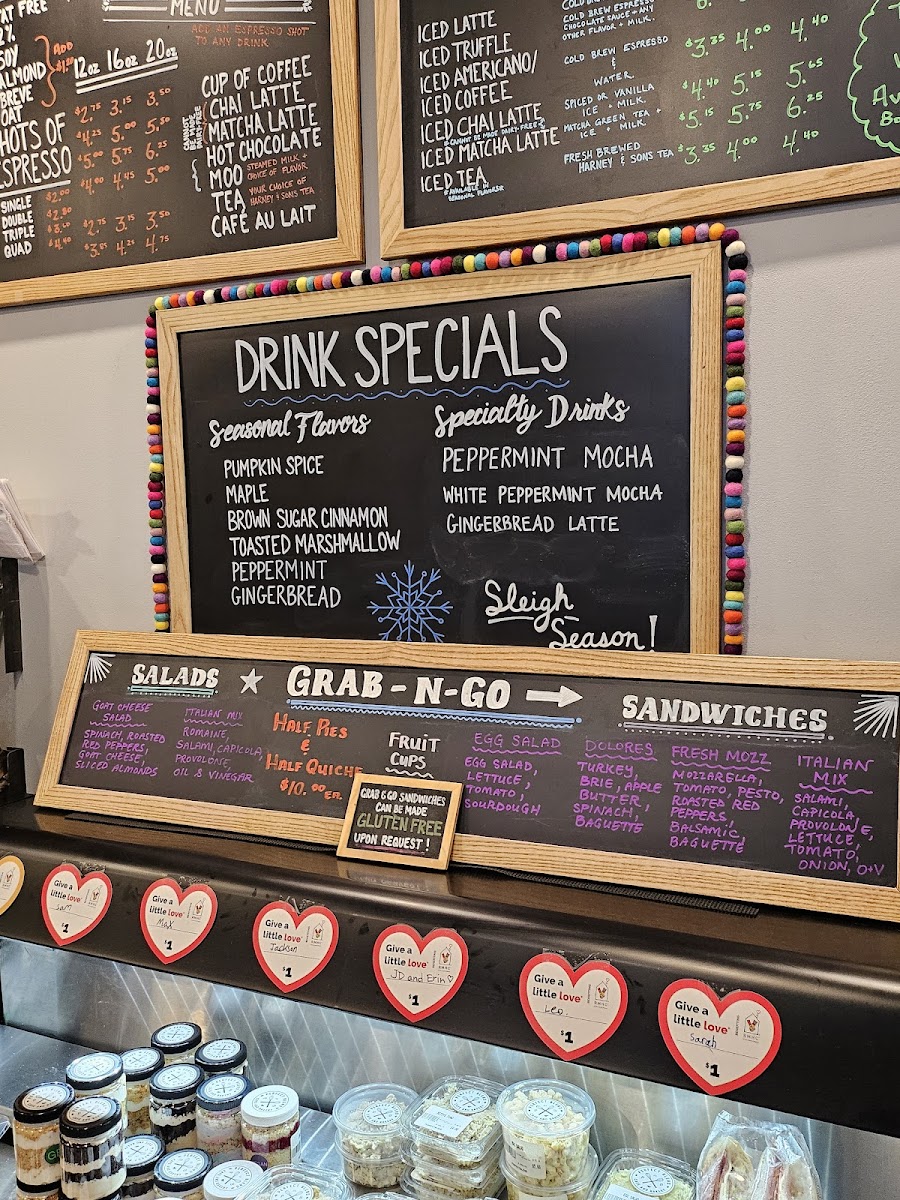 MENU
ADD AN ESPRESSO SHOT
TO ANY DRINK
FAT FREE
2%
SOY
ALMOND
BREVE
OAT
ADD
12oz 16oz 20oz
$2.75 3.15 3.50
$4.25 5.00 5.50
$5.00 5.75 6.25
$4.00 4.45 5.00
$2.75 3.15 3.50
$3.85 4.25 4.75
SHOTS OF
ESPRESSO
SINGLE $2.00
DOUBLE $2.80
TRIPLE
QUAD $4.40
CANNOT
BE MADE
DAIRY-FREE
CUP OF COFFEE
CHAI LATTE
MATCHA LATTE
HOT CHOCOLATE
MOO STEAMED MILK +
CHOICE OF FLAVOR
TEA YOUR CHOICE OF
HARNEY & SONS TEA
CAFÉ AU LAIT
ICED LATTE
ICED TRUFFLE
ICED AMERICANO/
ICED COFFEE
ICED CHAI LATTE
*CANNOT BE MADE DAIRY-FREE
ICED MATCHA LATTE
ICED TEA
*AVAILABLE IN
SEASONAL FLAVORS*
COLD BREW ESPRESSO
CHOCOLATE SAUCE + ANY
OTHER FLAVOR + MILK.
COLD BREW ESPRESSO
&
WATER.
SPICED OR VANILLA
ICE + MILK.
MATCHA GREEN TEA +
ICE + MILK.
FRESH BREWED
HARNEY & SONS TEA
$3.35 4.00 4.40
$4.40 5.15 5.65
$5.15 5.75 6.25
$3.35 4.00 4.40
DRINK SPECIALS
Seasonal Flavors
PUMPKIN SPICE
MAPLE
BROWN SUGAR CINNAMON
TOASTED MARSHMALLOW
PEPPERMINT
GINGERBREAD
Specialty Drinks
PEPPERMINT MOCHA
WHITE PEPPERMINT MOCHA
GINGERBREAD LATTE
Sleigh
Season!
SALADS
GRAB-N-GO
SANDWICHES
GOAT CHEESE
SALAD
SPINACH, ROASTED
RED PEPPERS,
GOAT CHEESE,
SLICED ALMONDS
ITALIAN MIX
ROMAINE,
SALAMI, CAPICOLA,
PROVOLONE,
OIL & VINEGAR
HALF PIES
&
HALF QUICHE
$10.00 ER.
FRUIT
CUPS
EGG SALAD
EGG SALAD,
LETTUCE,
TOMATO,
SOURDOUGH
DOLORES
TURKEY,
BRIE, APPLE
BUTTER,
SPINACH,
BAGUETTE
FRESH MOZZ
MOZZARELLA,
TOMATO, PESTO,
ROASTED RED
PEPPERS,
BALSAMIC,
BAGUETTE
ITALIAN
MIX
SALAMI,
CAPICOLA,
PROVOLONE,
LETTUCE,
TOMATO,
ONION, O+V
GRAB & GO SANDWICHES
CAN BE MADE
GLUTEN FREE
UPON REQUEST!
Give a
little love
Sam
$1
Give a
little love
Max
$1
Give a
little love
Jackson
$1
Give a
little love
JD and Erin
$1
Give a
little love
Leo
$1
Give a
little love
Sarah
$1